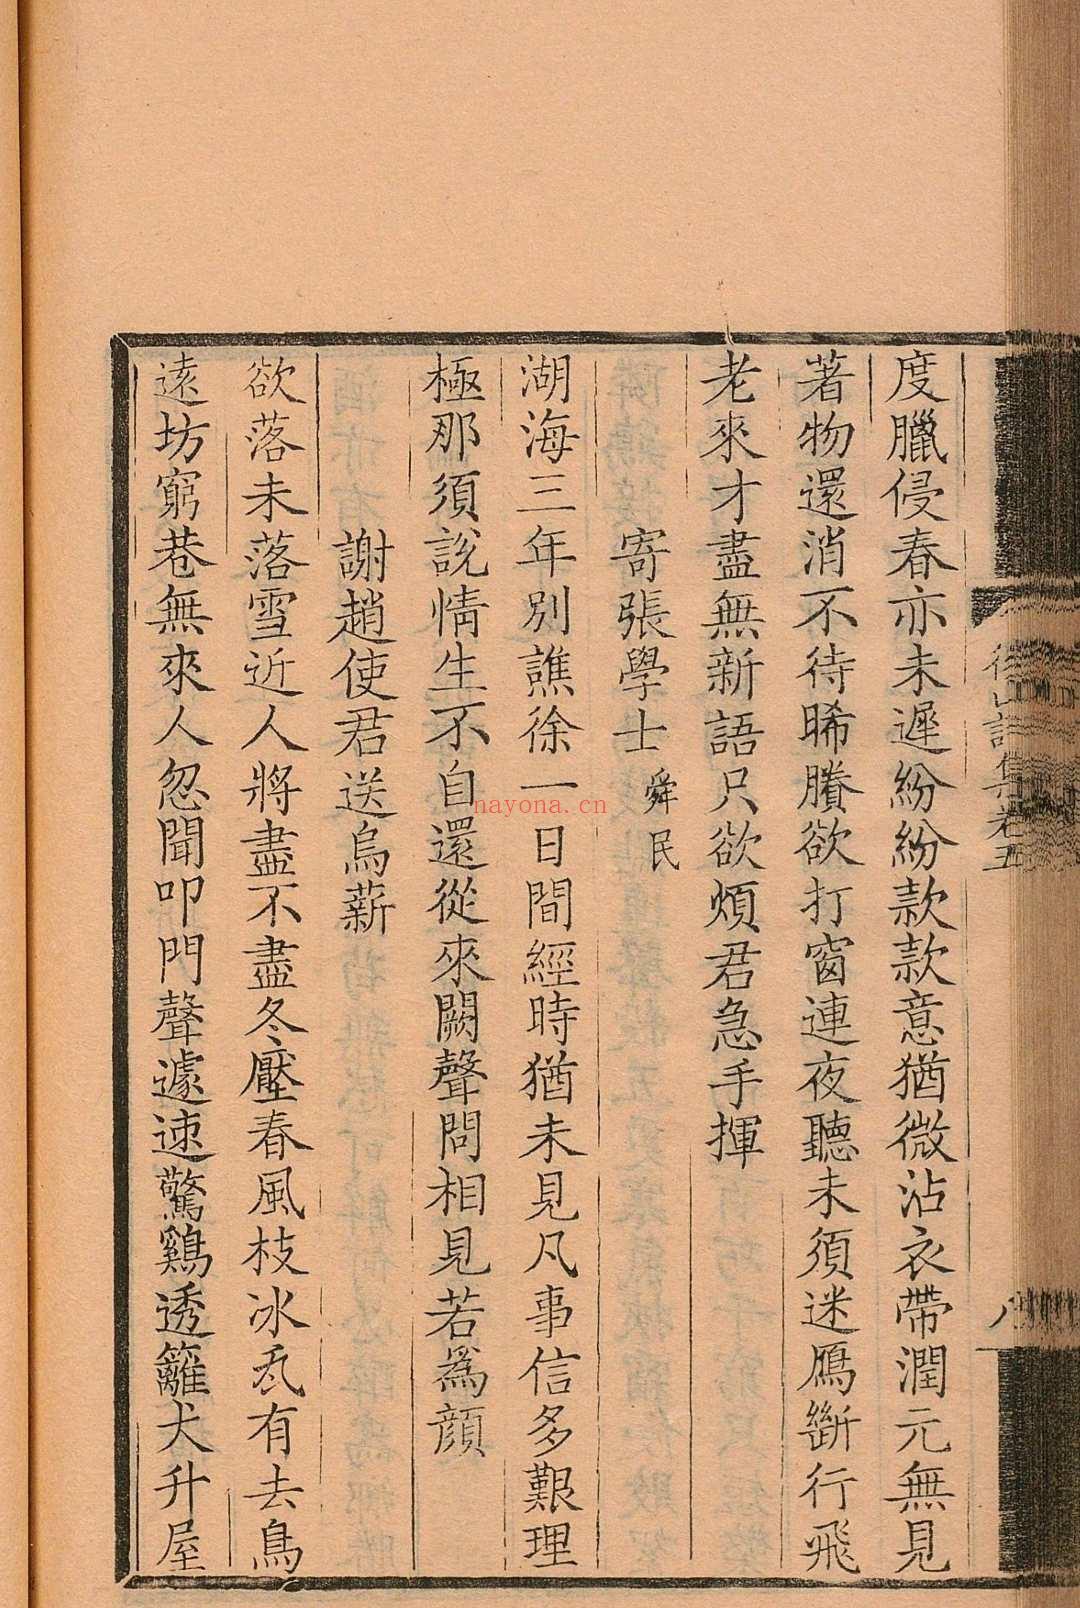 度臘侵春亦未遲紛紛款款意猶微沾衣帶潤元無見
著物還消不待晞臢欲打窗連夜聽未須迷鴈斷行飛
老來才盡無新語只欲煩君急手揮
寄張學士舜民
湖海三年別譙徐一日間經時猶未見凡事信多艱理
極那須説情生不自還從來闕聲問相見若爲顔
謝趙使君送烏薪
欲落未落雪近人將盡不盡冬壓春風枝冰瓦有去鳥
遠坊窮巷無來人忽聞叩門聲遽速驚鷄透籬犬升屋
後山詩集卷五
八
nayona.cn